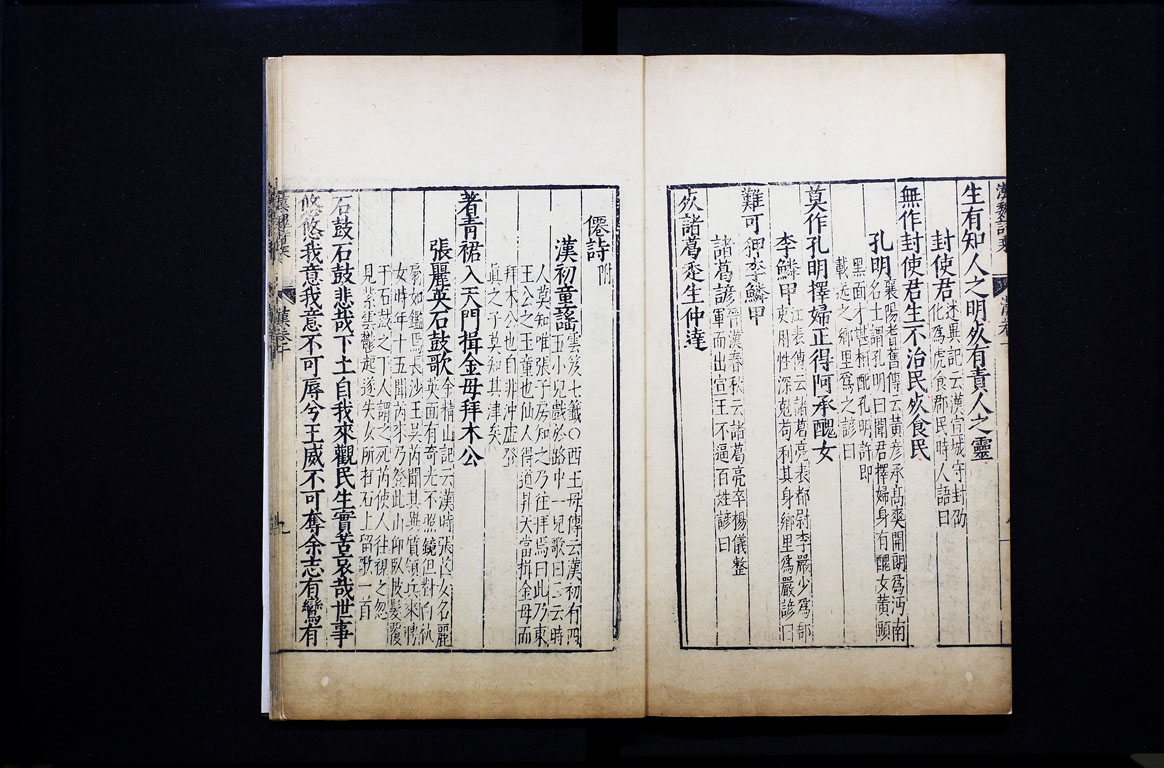 生有知人之明死有責人之靈
封使君述異記云漢宣城守封邵
化為虎食郡民時人語曰
無作封使君生不治民死食民
孔明襄陽耆舊傳云黃彥承高爽開朗為沔南
名士謂孔明曰聞君擇婦身有醜女黃頭
黑面才堪相配孔明許即
載送之鄉里為之諺曰
莫作孔明擇婦正得阿承醜女
李鱗甲江表傳云諸葛亮表都尉李嚴少為郡
吏用性深剋苟利其身鄉里為嚴諺曰
難可狎李鱗甲
諸葛諺晉漢春秋云諸葛亮卒楊儀整
軍而出宣王不逼百姓諺曰
死諸葛走生仲達
僊詩附
漢初童謠雲笈七籤〇西王母傳云漢初有四
五小兒戲於路中一兒歌曰云云時
人莫知唯張子房知之乃往拜焉曰此乃東
王公之玉童也仙人得道昇天當揖金母而
拜木公也自非冲虛登
真之子莫知其津矣
著青裙入天門揖金母拜木公
張麗英石鼓歌金精山記云漢時張芒女名麗
英面有奇光不照鏡但對白紈
扇如鑑焉長沙王吳芮聞其異質領兵來聘
女時年十五聞芮來乃登此山仰臥披髮覆
于石鼓之下人謂之死芮使人往視之忽
見紫雲鬱起遂失女所在石上留歌一首
石鼓石鼓悲哉下土自我來觀民生實苦哀哉世事
悠悠我意我意不可辱兮王威不可奪余志有鸞有